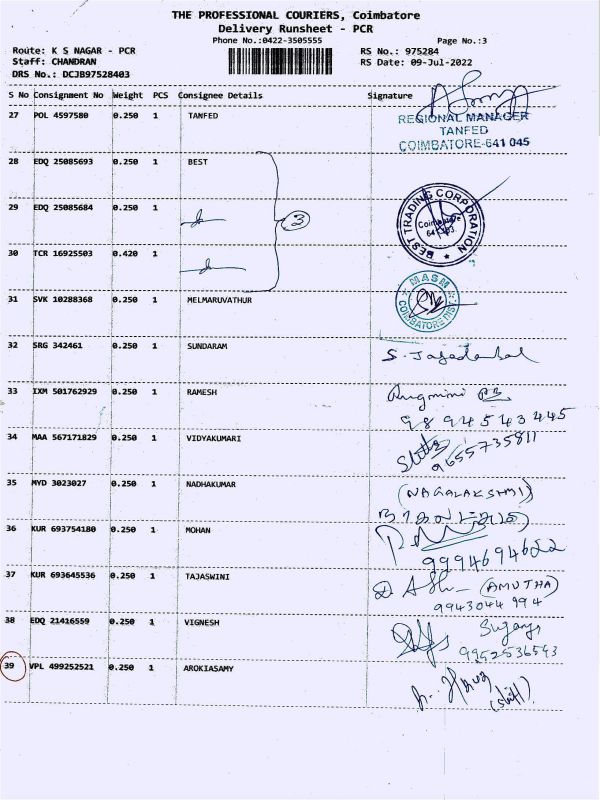 THE PROFESSIONAL COURIERS, Coimbatore
Delivery Runsheet - PCR
Phone No.:0422-3505555
Page No.:3
Route: K S NAGAR - PCR
RS No.: 975284
Staff: CHANDRAN
RS Date: 09-Jul-2022
DRS No.: DCJB97528403
S No Consignment No Weight PCS Consignee Details Signature
27 POL 4597580 0.250 1 TANFED
REGIONAL MANAGER
TANFED
COIMBATORE-641 045
28 EDQ 25085693 0.250 1 BEST
29 EDQ 25085684 0.250 1
3
BEST TRADING CORPORATION
Coimbatore
30 TCR 16925503 0.420 1
31 SVK 10288368 0.250 1 MELMARUVATHUR
MASM
COIMBATORE
32 SRG 342461 0.250 1 SUNDARAM
33 IXM 501762929 0.250 1 RAMESH
9894543445
34 MAA 567171829 0.250 1 VIDYAKUMARI
9655735811
35 MYD 3023027 0.250 1 NADHAKUMAR
(NAGALAKSHMI)
36 KUR 693754180 0.250 1 MOHAN
9994694622
37 KUR 693645536 0.250 1 TAJASWINI
(AMUTHA)
9943044994
38 EDQ 21416559 0.250 1 VIGNESH
9952536593
39 VPL 499252521 0.250 1 AROKIASAMY